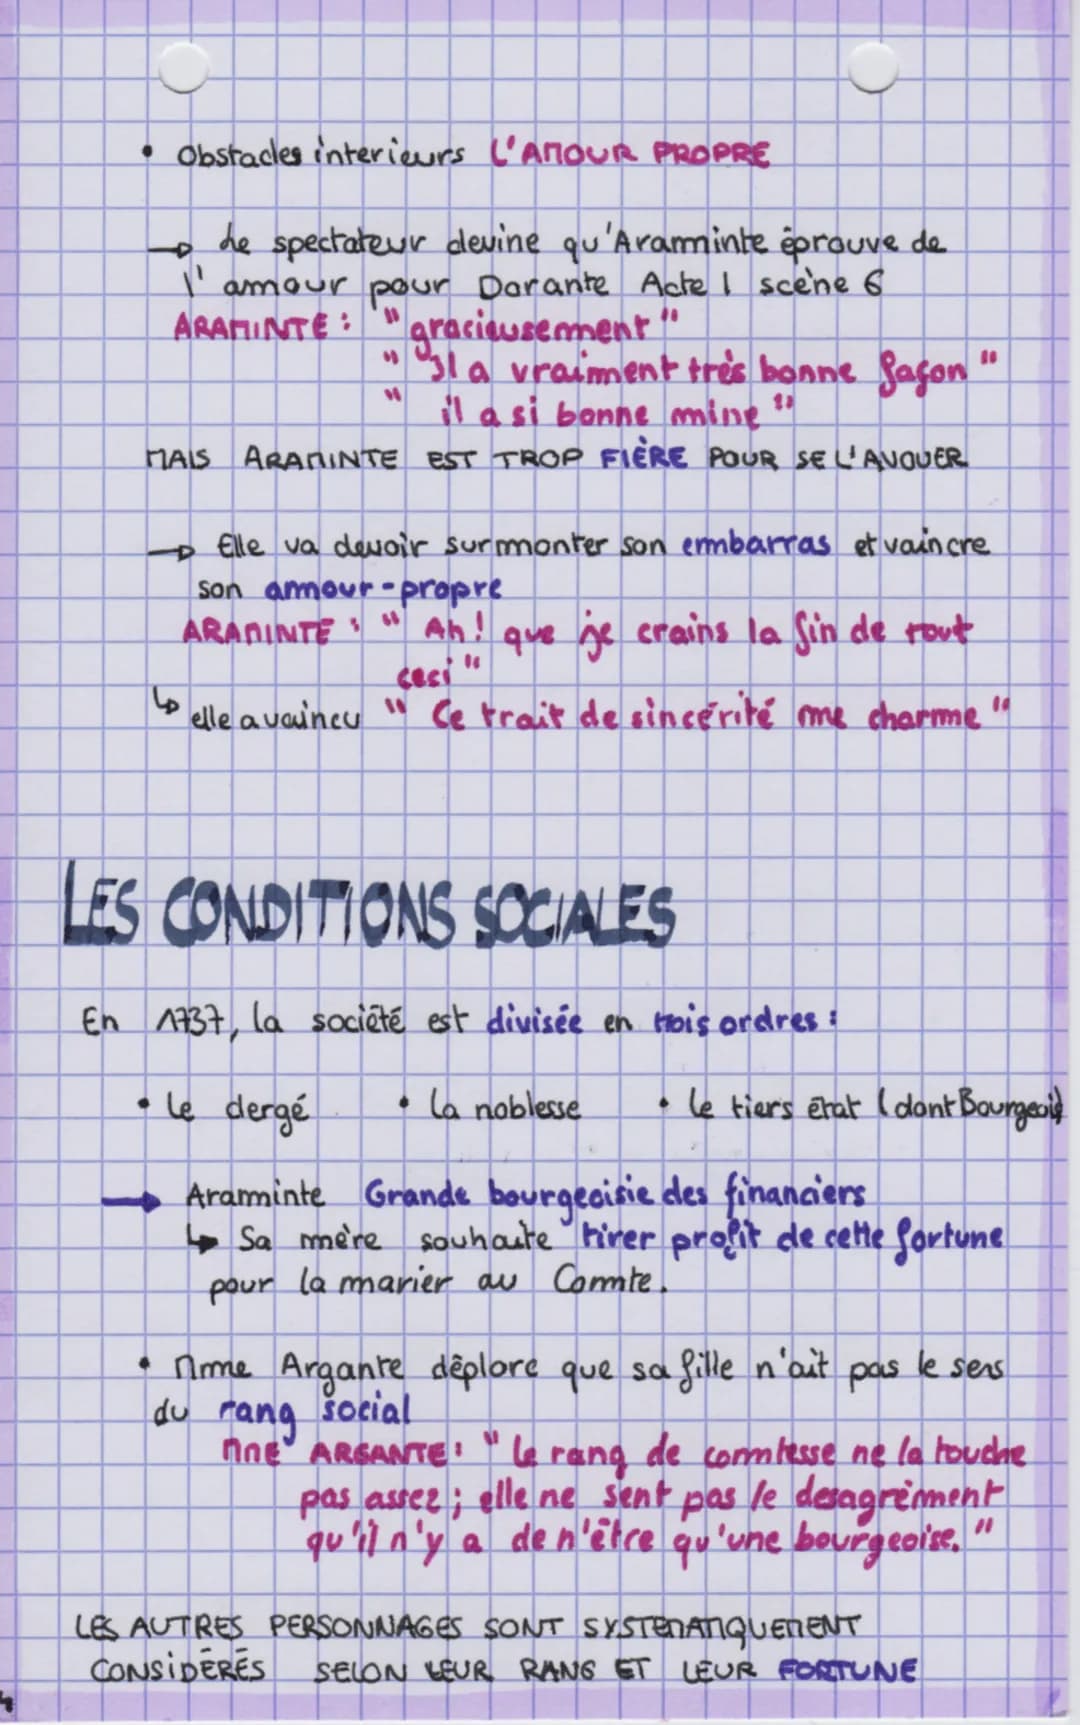 • Obstacles interieurs L'AMOUR PROPRE
→ Le spectateur devine qu'Araminte éprouve de
l'amour pour Dorante Acte I scène 6
ARAMINTE : "gracieusement"
" Il a vraiment très bonne façon "
" il a si bonne mine "
MAIS ARAMINTE EST TROP FIÈRE POUR SE L'AVOUER
→ Elle va devoir surmonter son embarras et vaincre
son amour-propre
ARAMINTE : " Ah ! que je crains la fin de tout
ceci "
↳ elle a vaincu " Ce trait de sincérité me charme "
LES CONDITIONS SOCIALES
En 1737, la société est divisée en trois ordres :
• le clergé • la noblesse • le tiers état (dont Bourgeois)
→ Araminte Grande bourgeoisie des financiers
↳ Sa mère souhaite tirer profit de cette fortune
pour la marier au Comte.
• Mme Argante déplore que sa fille n'ait pas le sens
du rang social
Mme ARGANTE : " le rang de comtesse ne la touche
pas assez ; elle ne sent pas le desagrément
qu'il n'y a de n'être qu'une bourgeoise. "
LES AUTRES PERSONNAGES SONT SYSTEMATIQUEMENT
CONSIDÉRÉS SELON LEUR RANG ET LEUR FORTUNE